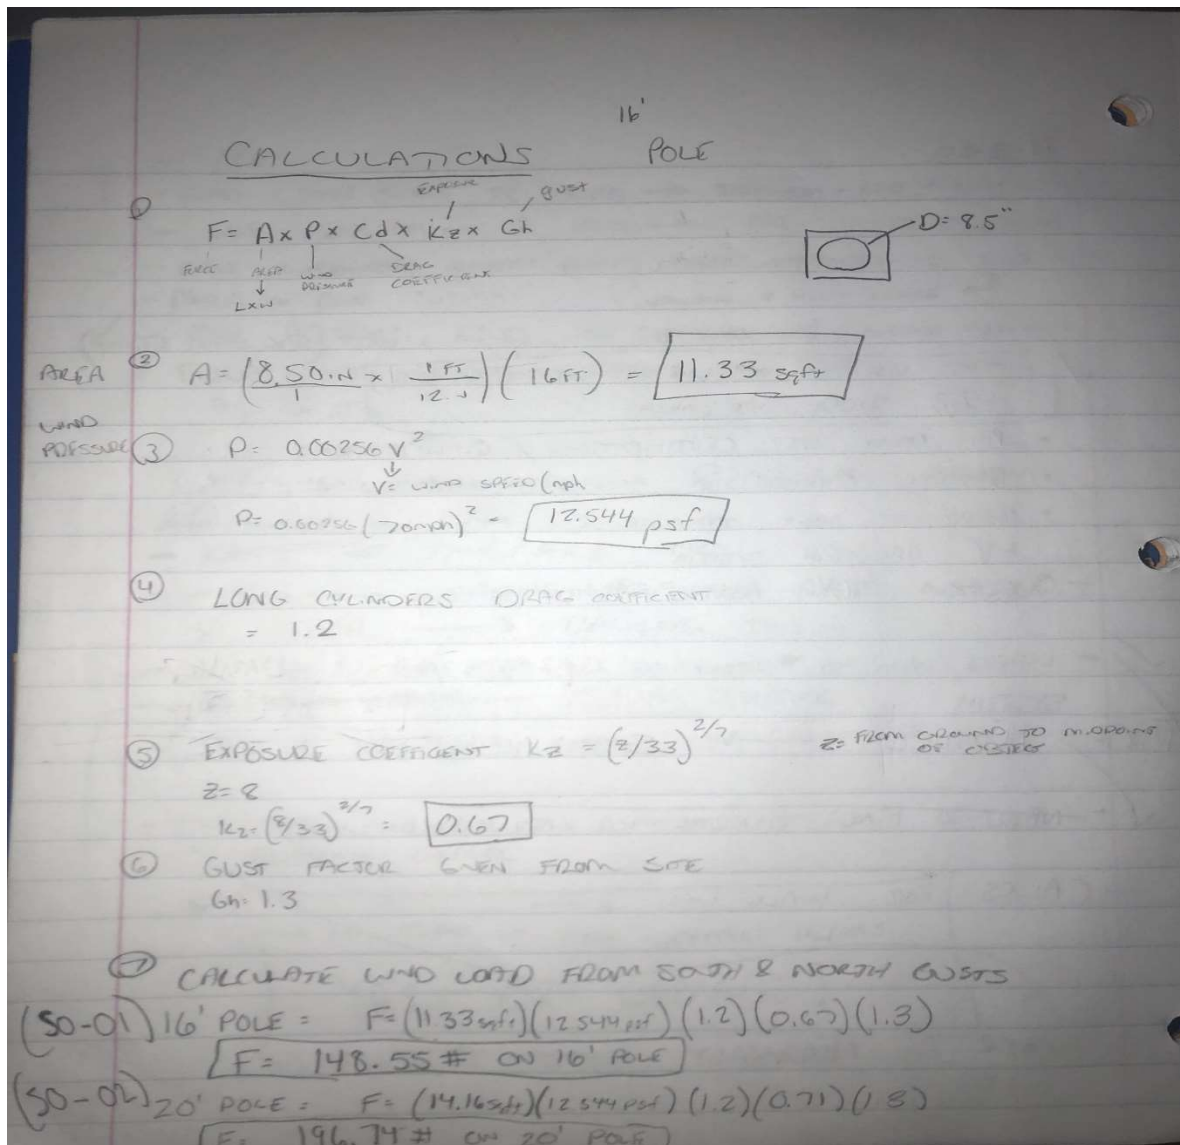 16'
CALCULATIONS POLE
EXPOSURE gust
① F = A x P x Cd x Kz x Gh
D= 8.5"
FORCE AREA WIND PRESSURE DRAG COEFFICIENT
↓
LXW
AREA ② A = (8.50in/1 x 1 FT/12in) (16 FT) = 11.33 sqft
WIND
PRESSURE ③ P= 0.00256 V²
↓
V= WIND SPEED (mph
P= 0.00256 (70mph)² = 12.544 psf
④ LONG CYLINDERS DRAG COEFFICIENT
= 1.2
⑤ EXPOSURE COEFFICENT Kz = (z/33)^2/7 z= FROM GROUND TO MIDPOINT
OF OBJECT
Z= 8
Kz= (8/33)^2/7 = 0.67
⑥ GUST FACTOR GIVEN FROM SITE
Gh= 1.3
⑦ CALCULATE WIND LOAD FROM SOUTH & NORTH GUSTS
(SO-01) 16' POLE = F= (11.33 sqft)(12.544 psf)(1.2)(0.67)(1.3)
F= 148.55 # ON 16' POLE
(SO-02) 20' POLE = F= (14.16 sqft)(12.544 psf)(1.2)(0.71)(1.3)
F= 196.74 # ON 20' POLE